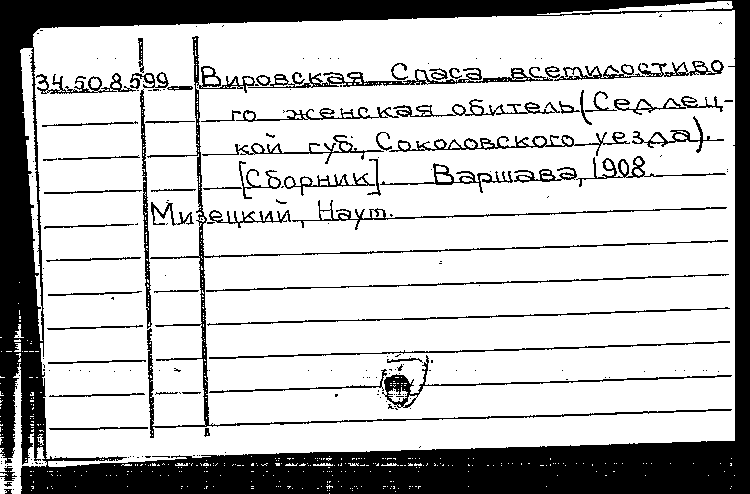 34.50.8.599 Вировская Спаса всемилостиво-
го женская обитель (Седлец-
кой губ., Соколовского уезда).
[Сборник]. Варшава, 1908.
Мизецкий, Наум.